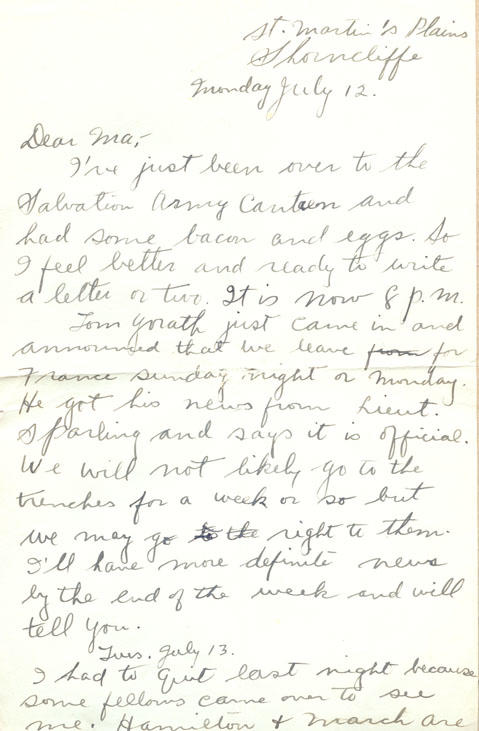 St. Martin's Plains
Shorncliffe
Monday July 12.
Dear Ma,-
I've just been over to the
Salvation Army Canteen and
had some bacon and eggs. So
I feel better and ready to write
a letter or two. It is now 8 p.m.
Tom Gorath just came in and
announced that we leave from for
France Sunday night or Monday.
He got his news from Lieut.
Sparling and says it is official.
We will not likely go to the
trenches for a week or so but
we may go to the right to them.
I'll have more definite news
by the end of the week and will
tell you.
Tues. July 13.
I had to quit last night because
some fellows came over to see
me. Hamilton & March are